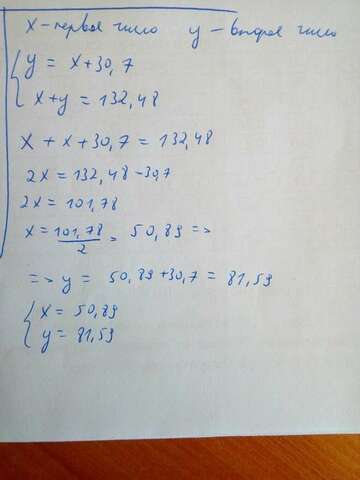 x - первое число y - второе число
{ y = x+30,7
x+y = 132,48
x + x + 30,7 = 132,48
2x = 132,48 - 30,7
2x = 101,78
x = 101,78/2 = 50,89 =>
=> y = 50,89 + 30,7 = 81,59
{ x = 50,89
y = 81,59